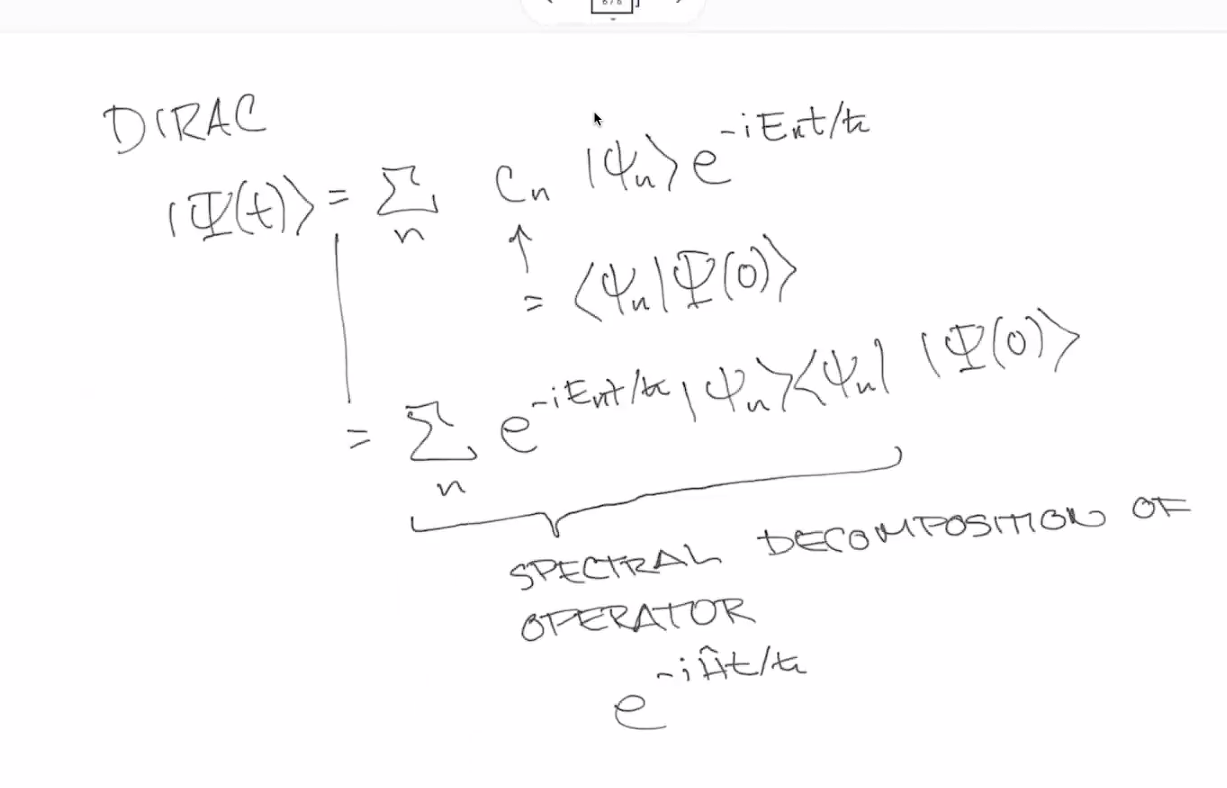 DIRAC
|Ψ(t)⟩ = Σ_n c_n |ψ_n⟩ e^{-iE_nt/ħ}
↑
= ⟨ψ_n|Ψ(0)⟩
= Σ_n e^{-iE_nt/ħ} |ψ_n⟩⟨ψ_n| |Ψ(0)⟩
SPECTRAL DECOMPOSITION OF
OPERATOR
e^{-iĤt/ħ}